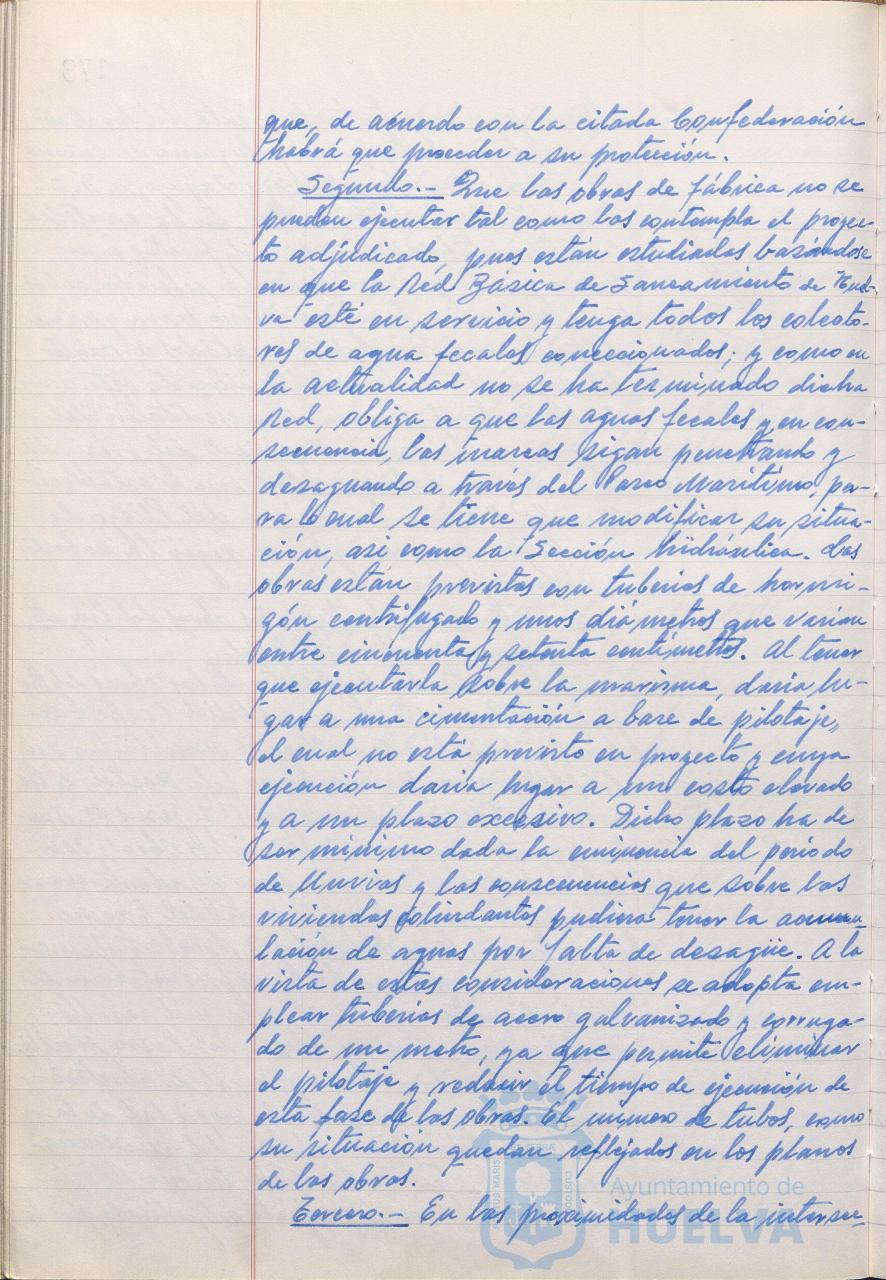 173
que, de acuerdo con la citada Confederación
habrá que proceder a su protección.
Segundo.- Que las obras de fábrica no se
pueden ejecutar tal como las contempla el proyec-
to adjudicado, pues están estudiadas basándose
en que la Red Básica de Saneamiento de Huel-
va esté en servicio y tenga todos los colecto-
res de agua fecales coneccionados; y como en
la actualidad no se ha terminado dicha
Red, obliga a que las aguas fecales y en con-
secuencia, las mareas sigan penetrando y
desaguando a través del Paseo Marítimo, pa-
ra lo cual se tiene que modificar su situa-
ción, asi como la Sección hidráulica. Las
obras están previstas con tuberias de hormi-
gón centrifugado y unos diámetros que varian
entre cincuenta y setenta centímetros. Al tener
que ejecutarla sobre la marisma, daria lu-
gar a una cimentación a base de pilotaje,
el cual no está previsto en proyecto y cuya
ejecución daria lugar a un costo elevado
y a un plazo excesivo. Dicho plazo ha de
ser minimo dada la eminencia del período
de lluvias y las consecuencias que sobre las
viviendas colindantes pudiera tener la acumu-
lación de aguas por falta de desagüe. A la
vista de estas consideraciones se adopta em-
plear tuberias de acero galvanizado y corruga-
do de un metro, ya que permite eliminar
el pilotaje y reducir el tiempo de ejecución de
esta fase de las obras. El número de tubos, como
su situación quedan reflejados en los planos
de las obras.
Tercero.- En las proximidades de la intersec-
Ayuntamiento de
HUELVA